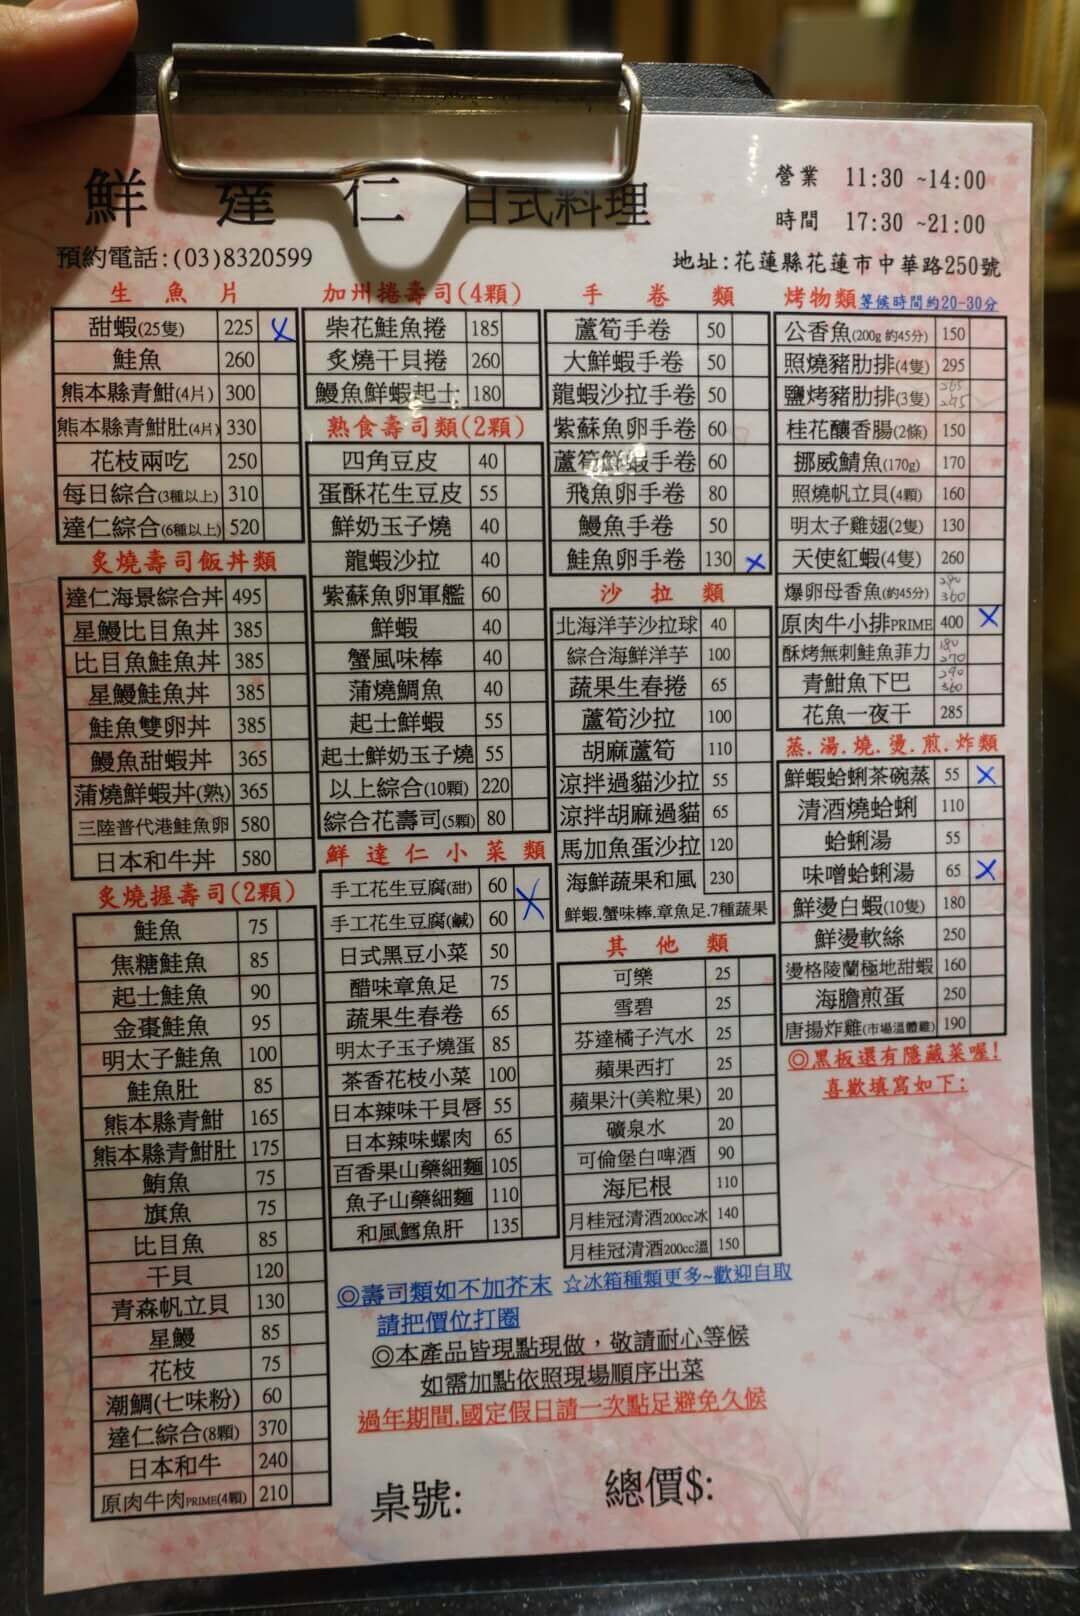 鮮達仁 日式料理
營業 11:30 ~14:00
時間 17:30 ~21:00
預約電話:(03)8320599
地址:花蓮縣花蓮市中華路250號
生魚片
甜蝦(25隻) 225 X
鮭魚 260
熊本縣青魽(4片) 300
熊本縣青魽肚(4片) 330
花枝兩吃 250
每日綜合(3種以上) 310
達仁綜合(6種以上) 520
炙燒壽司飯丼類
達仁海景綜合丼 495
星鰻比目魚丼 385
比目魚鮭魚丼 385
星鰻鮭魚丼 385
鮭魚雙卵丼 385
鰻魚甜蝦丼 365
蒲燒鮮蝦丼(熟) 365
三陸普代港鮭魚卵 580
日本和牛丼 580
炙燒握壽司(2顆)
鮭魚 75
焦糖鮭魚 85
起士鮭魚 90
金棗鮭魚 95
明太子鮭魚 100
鮭魚肚 85
熊本縣青魽 165
熊本縣青魽肚 175
鮪魚 75
旗魚 75
比目魚 85
干貝 120
青森帆立貝 130
星鰻 85
花枝 75
潮鯛(七味粉) 60
達仁綜合(8顆) 370
日本和牛 240
原肉牛肉PRIME(4顆) 210
加州捲壽司(4顆)
柴花鮭魚捲 185
炙燒干貝捲 260
鰻魚鮮蝦起士 180
熟食壽司類(2顆)
四角豆皮 40
蛋酥花生豆皮 55
鮮奶玉子燒 40
龍蝦沙拉 40
紫蘇魚卵軍艦 60
鮮蝦 40
蟹風味棒 40
蒲燒鯛魚 40
起士鮮蝦 55
起士鮮奶玉子燒 55
以上綜合(10顆) 220
綜合花壽司(5顆) 80
鮮達仁小菜類
手工花生豆腐(甜) 60 X
手工花生豆腐(鹹) 60
日式黑豆小菜 50
醋味章魚足 75
蔬果生春卷 65
明太子玉子燒蛋 85
茶香花枝小菜 100
日本辣味干貝唇 55
日本辣味螺肉 65
百香果山藥細麵 105
魚子山藥細麵 110
和風鱈魚肝 135
手卷類
蘆筍手卷 50
大鮮蝦手卷 50
龍蝦沙拉手卷 50
紫蘇魚卵手卷 60
蘆筍鮮蝦手卷 60
飛魚卵手卷 80
鰻魚手卷 50
鮭魚卵手卷 130 X
沙拉類
北海洋芋沙拉球 40
綜合海鮮洋芋 100
蔬果生春捲 65
蘆筍沙拉 100
胡麻蘆筍 110
涼拌過貓沙拉 55
涼拌胡麻過貓 65
馬加魚蛋沙拉 120
海鮮蔬果和風 230
鮮蝦.蟹味棒.章魚足.7種蔬果
其他類
可樂 25
雪碧 25
芬達橘子汽水 25
蘋果西打 25
蘋果汁(美粒果) 20
礦泉水 20
可倫堡白啤酒 90
海尼根 110
月桂冠清酒200cc冰 140
月桂冠清酒200cc溫 150
烤物類 等候時間約20-30分
公香魚(200g 約45分) 150
照燒豬肋排(4隻) 295
鹽烤豬肋排(3隻) 265 295
桂花釀香腸(2條) 150
挪威鯖魚(170g) 170
照燒帆立貝(4顆) 160
明太子雞翅(2隻) 130
天使紅蝦(4隻) 260
爆卵母香魚(約45分) 290 360
原肉牛小排PRIME 400 X
酥烤無刺鮭魚菲力 180 270
青魽魚下巴 290 360
花魚一夜干 285
蒸.湯.燒.燙.煎.炸類
鮮蝦蛤蜊茶碗蒸 55 X
清酒燒蛤蜊 110
蛤蜊湯 55
味噌蛤蜊湯 65 X
鮮燙白蝦(10隻) 180
鮮燙軟絲 250
燙格陵蘭極地甜蝦 160
海膽煎蛋 250
唐揚炸雞(市場溫體雞) 190
◎黑板還有隱藏菜喔!
喜歡填寫如下:
◎壽司類如不加芥末
請把價位打圈
☆冰箱種類更多~歡迎自取
◎本產品皆現點現做,敬請耐心等候
如需加點依照現場順序出菜
過年期間.國定假日請一次點足避免久候
桌號:
總價$: